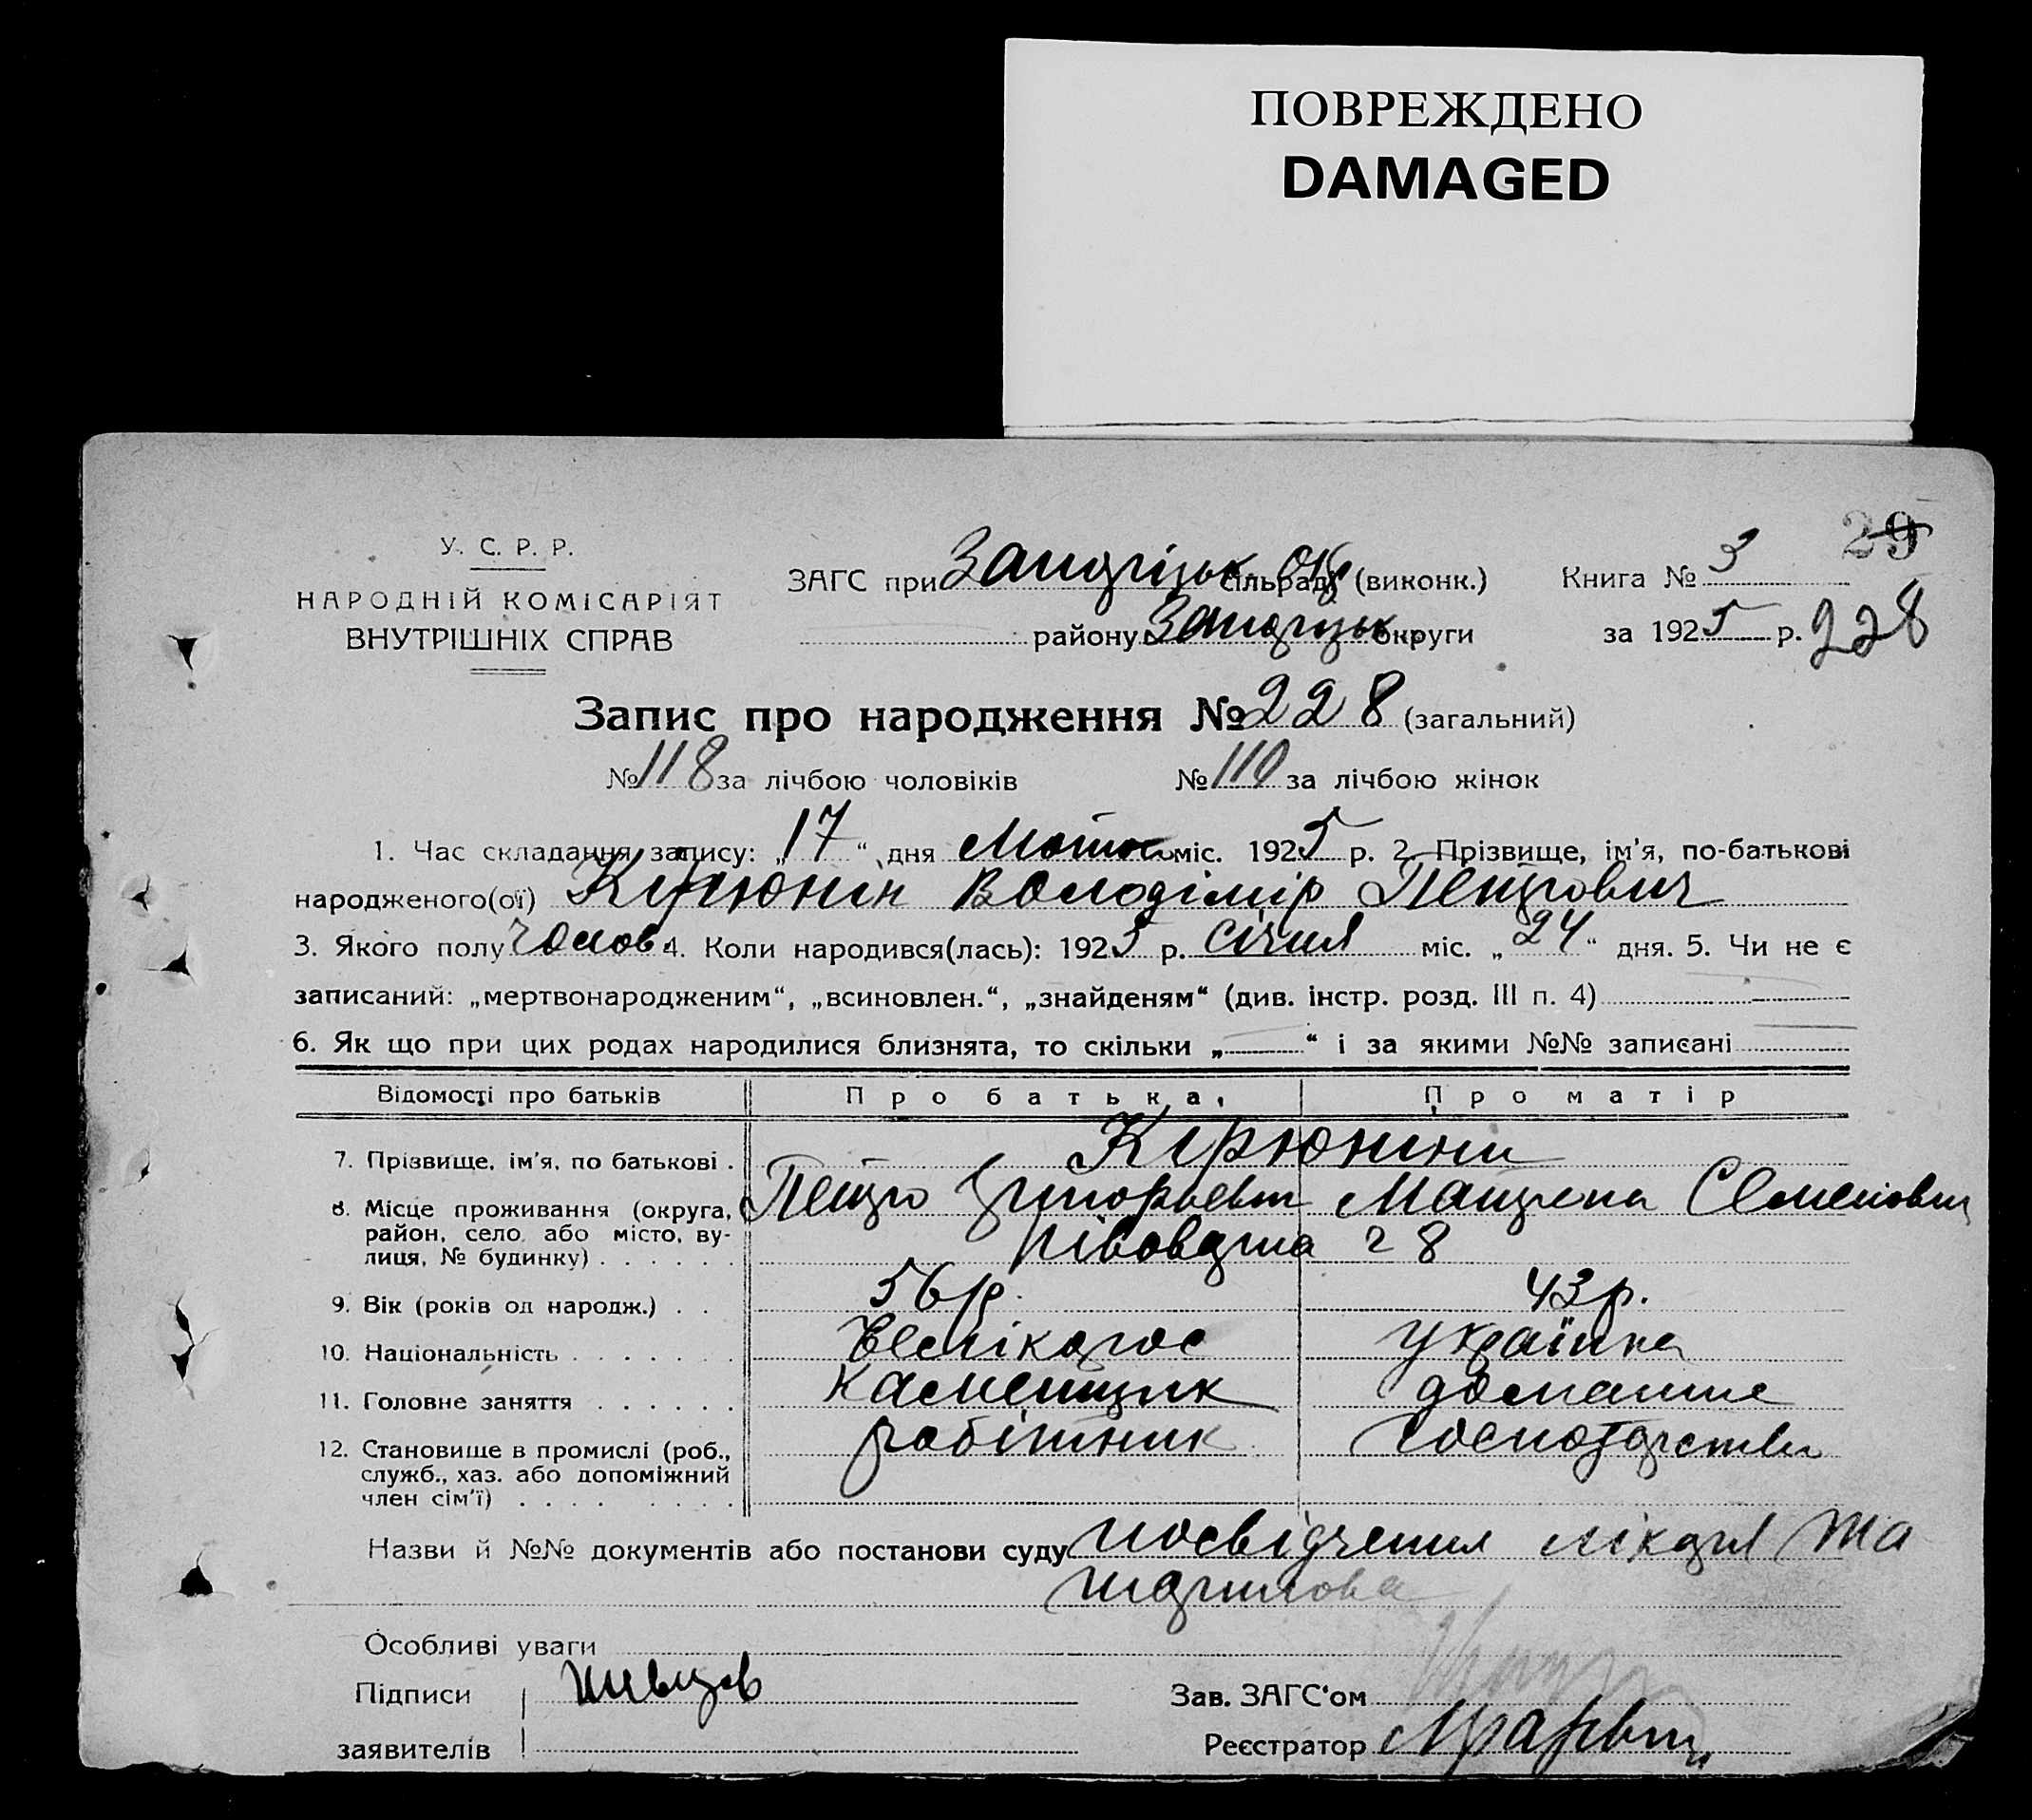 ПОВРЕЖДЕНО
DAMAGED
29
У. С. Р. Р.
НАРОДНІЙ КОМІСАРІЯТ
ВНУТРІШНІХ СПРАВ
ЗАГС при сільраді (виконк.)
району округи
Книга № 3
за 1925 р. 228
Запис про народження № 228 (загальний)
№ 118 за лічбою чоловіків № 110 за лічбою жінок
1. Час складання запису: „17“ дня міс. 1925 р. 2. Прізвище, ім'я, по-батькові
народженого(ої) Кірюнін Володімір Петрович
3. Якого полу чолов. 4. Коли народився(лась): 1925 р. січня міс. „24“ дня. 5. Чи не є
записаний: „мертвонародженим“, „всиновлен.“, „знайденям“ (див. інстр. розд. III п. 4)
6. Як що при цих родах народилися близнята, то скільки „ “ і за якими №№ записані
Відомості про батьків Про батька Про матір
7. Прізвище, ім'я, по батькові . Кірюнини
8. Місце проживання (округа, Петро Григорьевич Мотрена Семенівна
район, село або місто, ву-
лиця, № будинку) . . . . . . 28
9. Вік (років од народж.) . . 56 р. 43 р.
10. Національність . . . . . . . Великорос Українка
11. Головне заняття . . . . . . каменщик домашне
12. Становище в промислі (роб., робітник господарство
служб., хаз. або допоміжний
член сім'ї) . . . . . . . .
Назви й №№ документів або постанови суду посвідчення лікаря та
Особливі уваги
Підписи Швцов
заявителів
Зав. ЗАГС'ом
Реєстратор